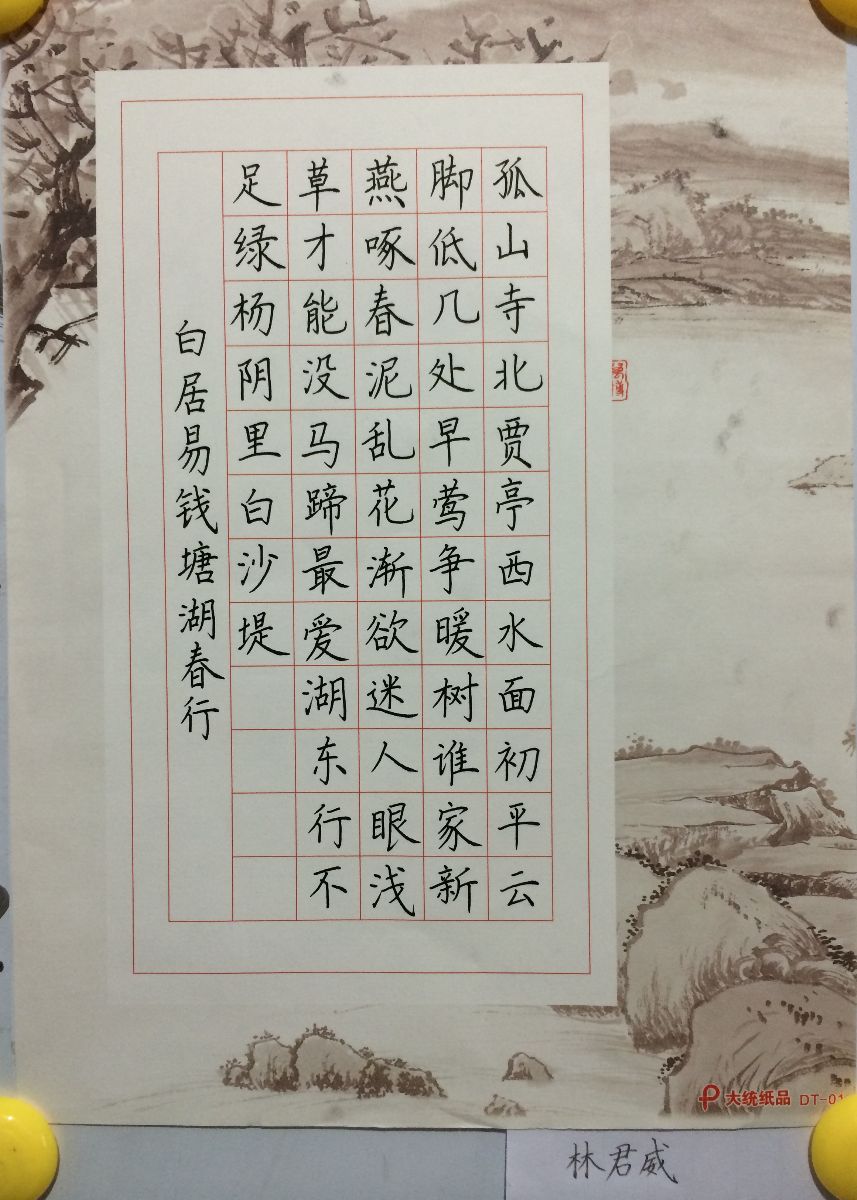 孤山寺北贾亭西水面初平云
脚低几处早莺争暖树谁家新
燕啄春泥乱花渐欲迷人眼浅
草才能没马蹄最爱湖东行不
足绿杨阴里白沙堤
白居易钱塘湖春行
大统纸品 DT-01
林君威